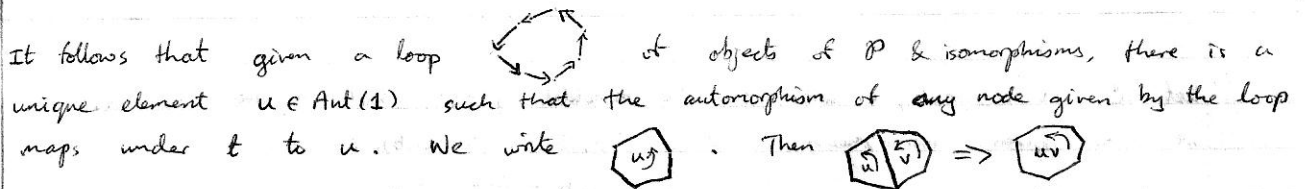 It follows that given a loop of objects of P & isomorphisms, there is a
unique element u ∈ Aut(1) such that the automorphism of any node given by the loop
maps under t to u. We write u . Then u v ⇒ uv